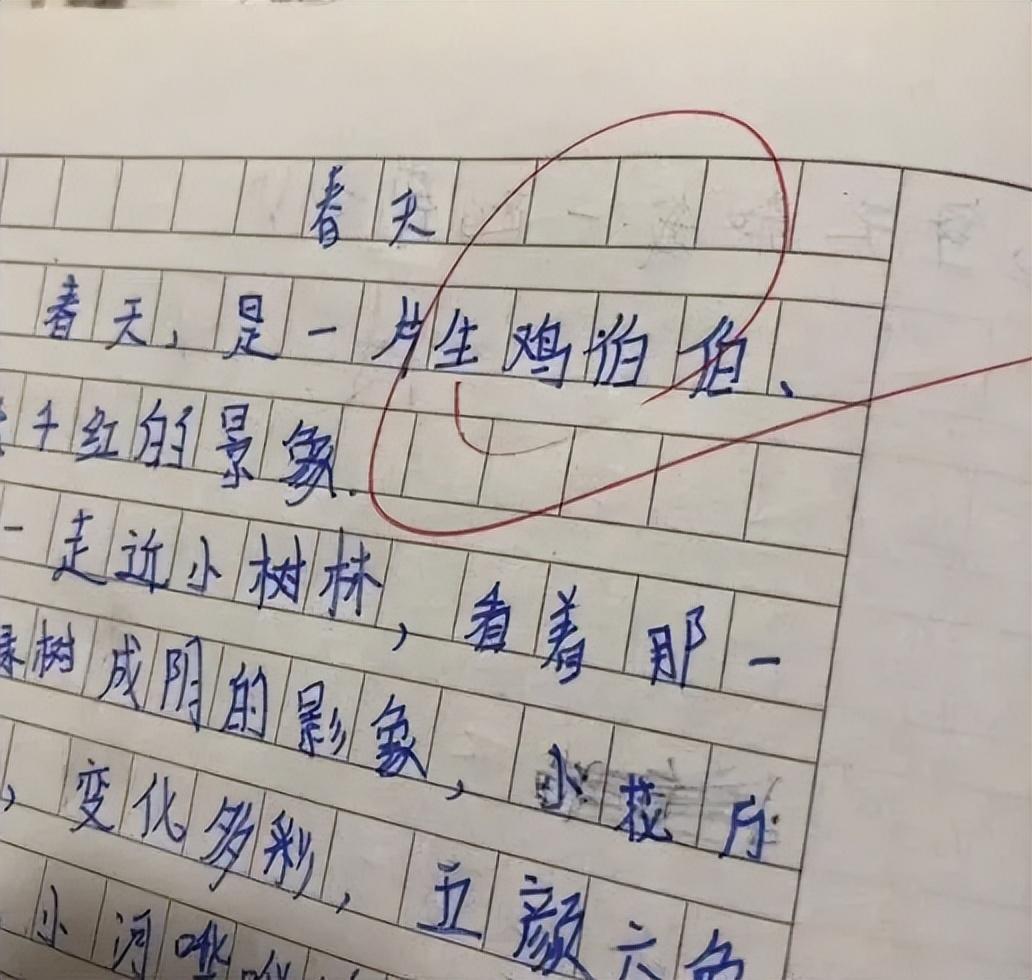 春天
春天，是一片生鸡伯伯、
千红的景象.
一走近小树林，看着那一
树成阴的影象，小花
，变化多彩，五颜六色
小河